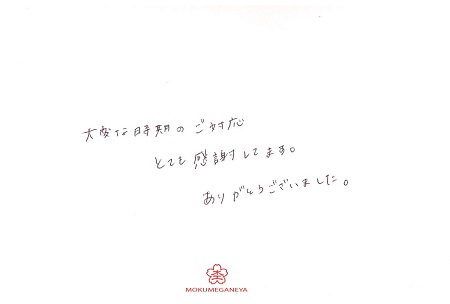 大変な時期のご対応
とても感謝してます。
ありがとうございました。
MOKUMEGANEYA